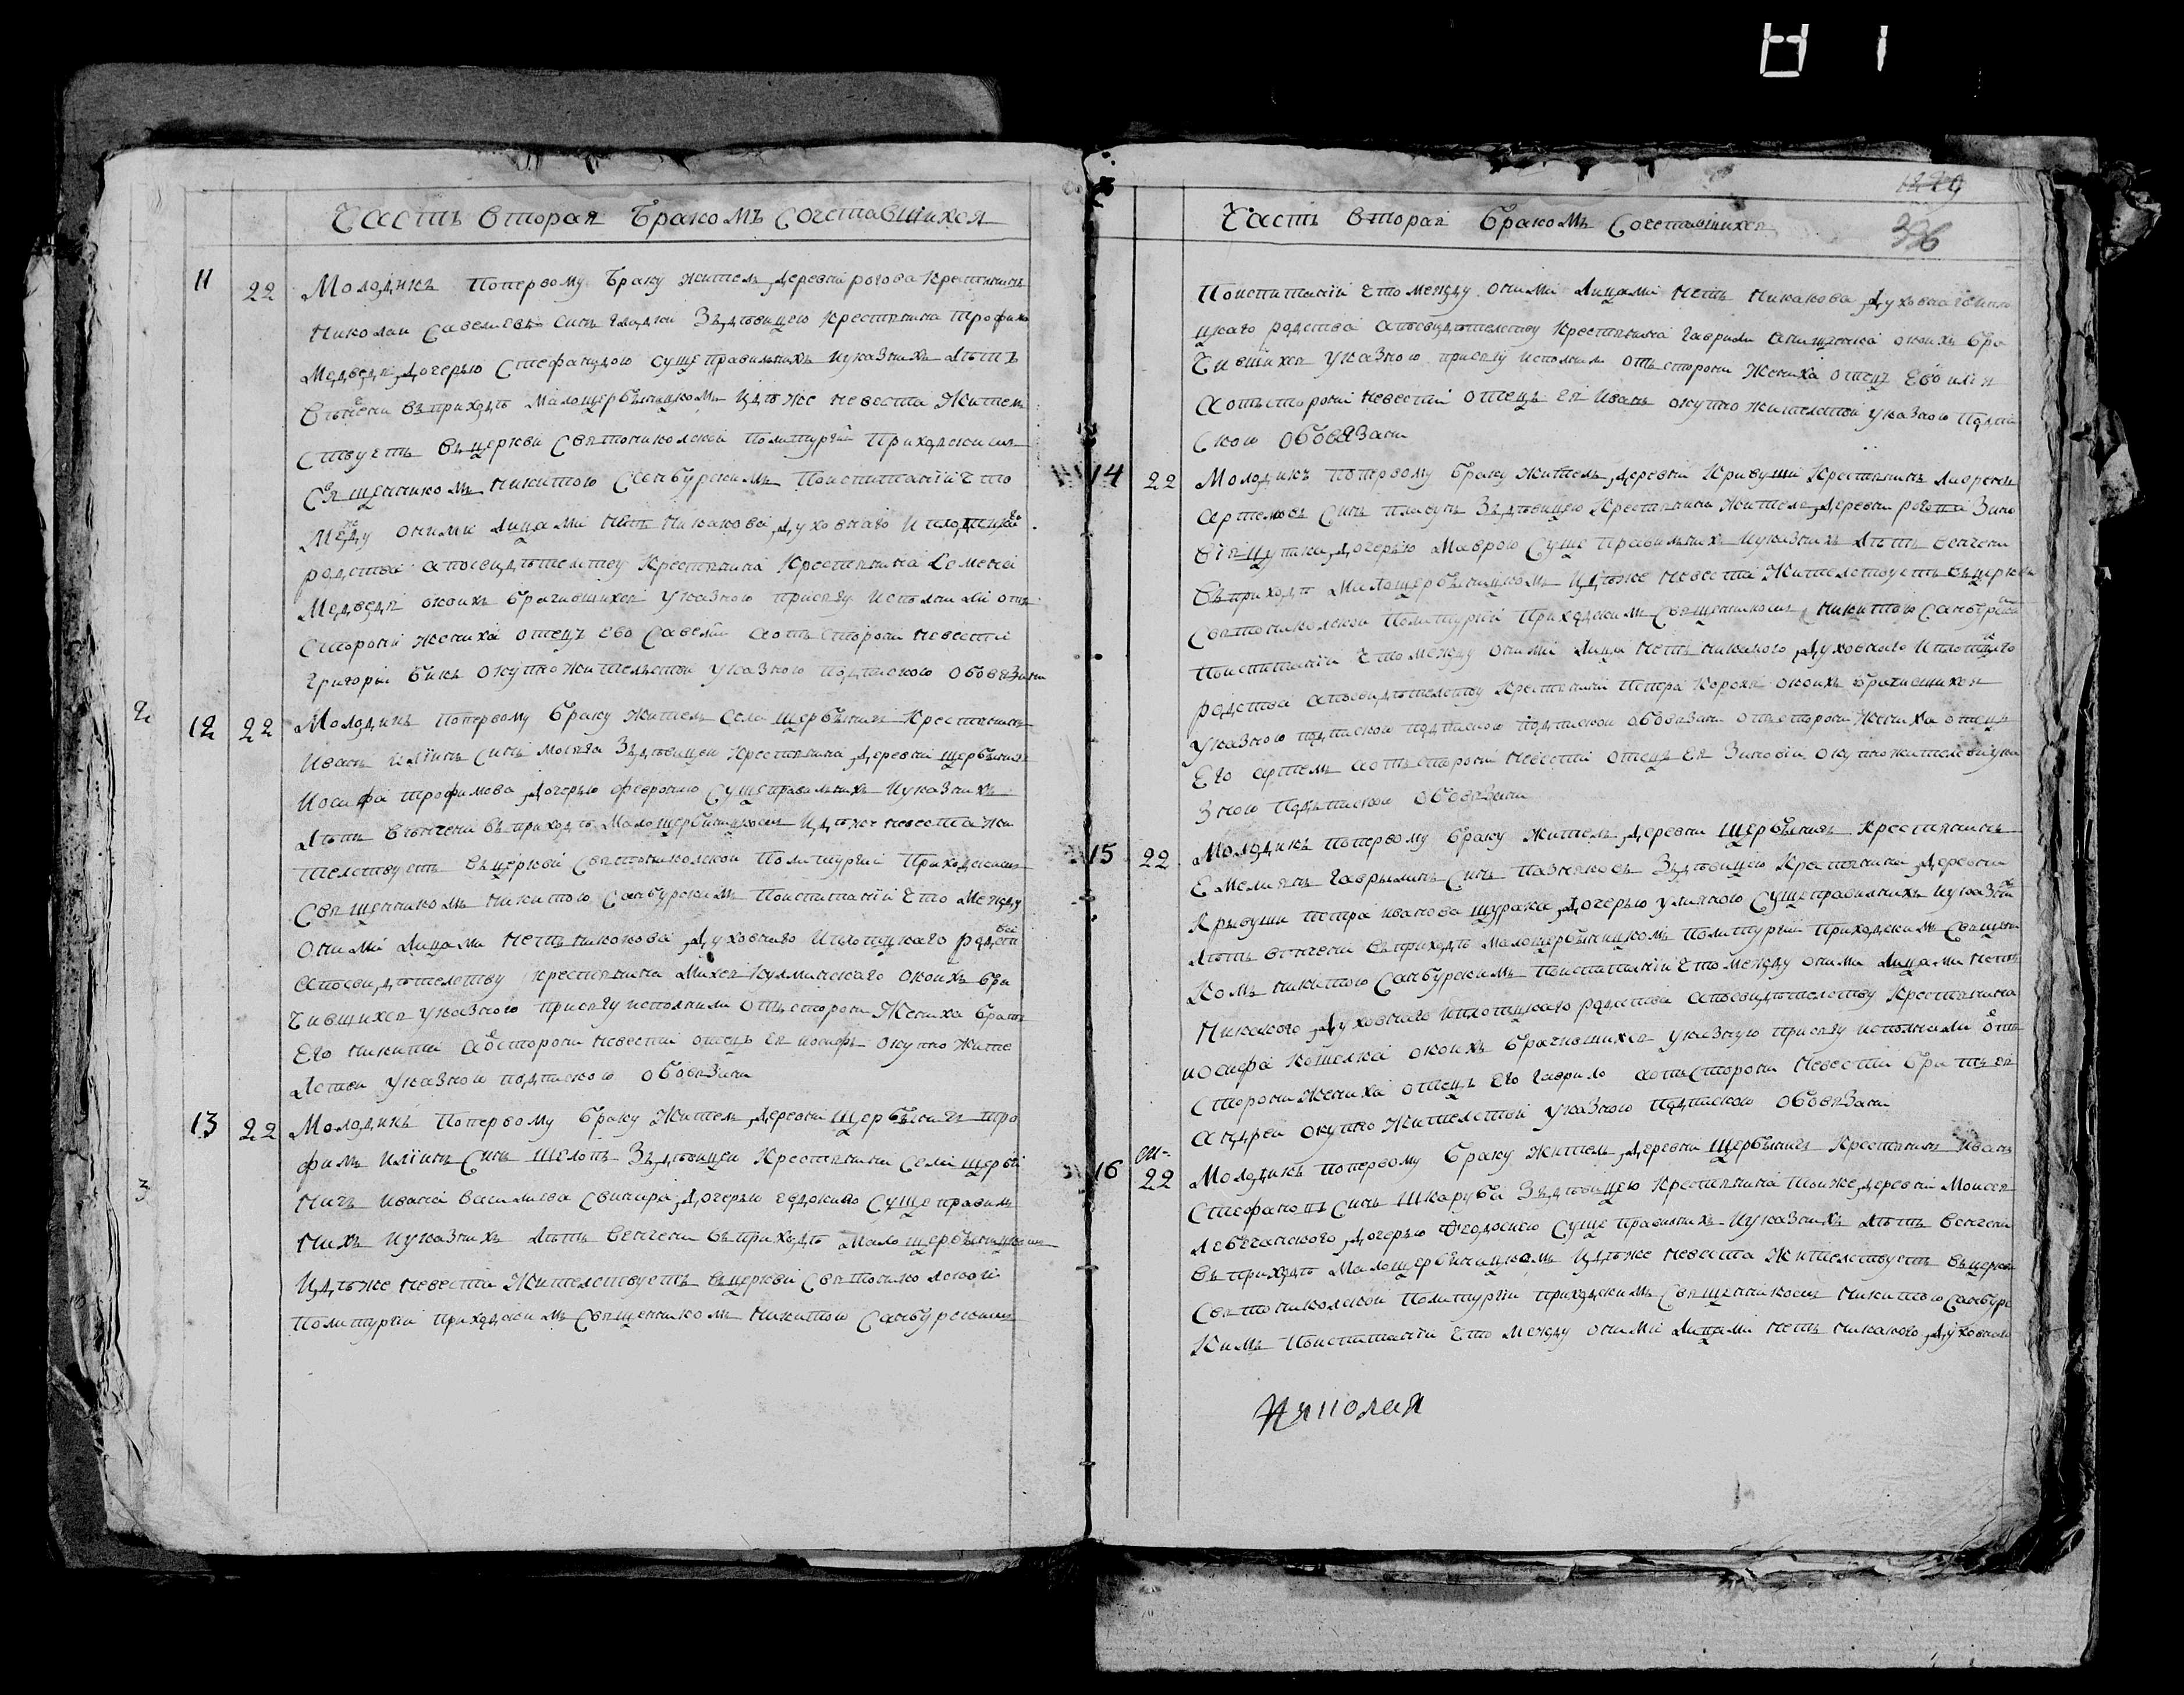 Часть вторая бракомъ сочетавшихся
11 22 Молодикъ попервому браку житель деревни рогова крестянинъ
николай савелиевъ синъ гладки здѣвицею крестянина трофима
медведя дочерью стефанидою суще правилнихъ иуказнихъ лѣтъ
вѣнчени въприходѣ малощербѣницкомъ идѣже невеста жител
ствуетъ въцеркви святониколской политургіи приходскимъ
священникомъ никитою самбурскимъ поиспитаніи что
между оними лицами нетъ никакова духовнаго иплотцкаго
родства апосвидѣтелству крестянина крестянина семена
медведя окоихъ брачившихся указною присягу исполнили отъ
сторони жениха отецъ его савелій аотъ сторони невести
григорій бикъ окупножителстви указною подпискою обовязани
2 12 22 Молодикъ попервому браку житель села щербѣнки крестянинъ
иванъ иліинъ синъ здѣвицею крестянина деревни щербѣнки
иосифа трофимова дочерью феврониею сущеправилнихъ иуказнихъ
лѣтъ вѣнчени въприходѣ малощербѣницкомъ идѣже невеста жи
телствуетъ въцеркви святониколской политургіи приходскимъ
священникомъ никитою самбурскимъ поиспитаніи что между
оними лицами нетъ никакова духовнаго иплотцкаго родства
апосвидѣтелству крестянина михея кулминскаго окоихъ бра
чившихся указною присягу исполнили отъсторони жениха братъ
его никита аотсторони невести отецъ ея иосифъ окупножите
лстви указною подпискою обовязани
3 13 22 Молодикъ попервому браку житель деревни щербѣнки тро
фимъ иліинъ синъ здѣвицею крестянина села щербѣ
нкы ивана василиева свинара дочерью евдокиею суще правил
нихъ иуказнихъ лѣтъ венчени въприходѣ малощербѣницкомъ
идѣже невеста жителствуетъ въцеркви святониколской
политургіи приходскимъ священникомъ никитою самбурскимъ
Часть вторая бракомъ сочетавшихся
326
поиспитаніи что между оними лицами нетъ никакова духовнаго ипло
цкаго родства апосвидѣтелству крестянина гаврили окоихъ бра
чившихся указною присягу исполнили отъ сторони жениха отецъ его илія
аотъсторони невести отецъ ея иванъ окупножителстви указною подпи
скою обовязани
14 22 Молодикъ попервому браку житель деревни кривуши крестянинъ
артемовъ синъ здѣвицею крестянина жителя деревни зино
дочерью маврою суще правилнихъ иуказнихъ лѣтъ венчени
въприходѣ малощербѣницкомъ идѣже невеста жителствуетъ въцеркви
святониколской политургіи приходскимъ священникомъ никитою самбурским
поиспитаніи что между оними лица нетъ никакого духовнаго иплотцкаго
родства апосвидѣтелству крестянина петра окоихъ брачившихся
указною подпискою подпискою подпискою обовязани отъсторони жениха отецъ
его артемъ аотъсторони невести отецъ ея зиновій окупножителстви ука
зною подпискою обовязани
15 22 Молодикъ попервому браку житель деревни щербѣнки крестянинъ
емелиянъ гаврилинъ синъ здѣвицею крестянина деревни
кривуши петра иванова щурака дочерью улияною сущеправилнихъ иуказних
лѣтъ венчени въприходѣ малощербѣницкомъ политургіи приходскимъ священи
комъ никитою самбурскимъ поиспитаніи что между оними лицами нетъ
никакого духовнаго иплотцкаго родства апосвидѣтелству крестянина
иосифа кошелка окоихъ брачившихся указную присягу исполнили отъ
сторони жениха отецъ его гаврило аотъсторони невести братъ ея
андрей окупножителстви указною подпискою обовязани
16 22 Молодикъ попервому браку житель деревни щербѣнки крестянинъ иванъ
стефановъ синъ шкаруба здѣвицею крестянина тоиже деревни моисея
дочерью феодосиею суще правилнихъ иуказнихъ лѣтъ венчени
въприходѣ малощербѣницкомъ идѣже невеста жителствуетъ въцеркви
святониколской политургіи приходскимъ священникомъ никитою самбурс
кимъ поиспитаніи что между оними лицами нетъ никакого духовнаго